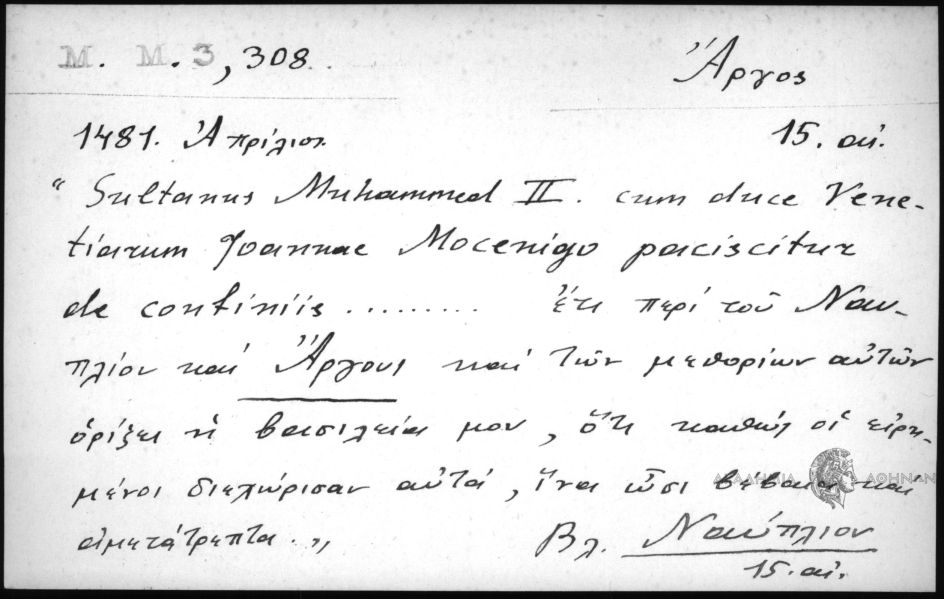 M. M. 3, 308.
Ἄργος
1481. Ἀπρίλιος.
15. αἰ.
“Sultanus Muhammed II. cum duce Vene-
tiarum Joannae Mocenigo paciscitur
de confiniis ......... ἔτι περὶ τοῦ Ναυ-
πλίου καὶ Ἄργους καὶ τῶν μεθορίων αὐτῶν
ὁρίζει ἡ βασιλεία μου, ὅτι καθὼς οἱ εἰρη-
μένοι διεχώρισαν αὐτά, ἵνα ὦσι βέβαια καὶ
ἀμετάτρεπτα.„
Βλ. Ναύπλιον
15. αἰ.
ΑΚΑΔΗΜΙΑ ΑΘΗΝΩΝ